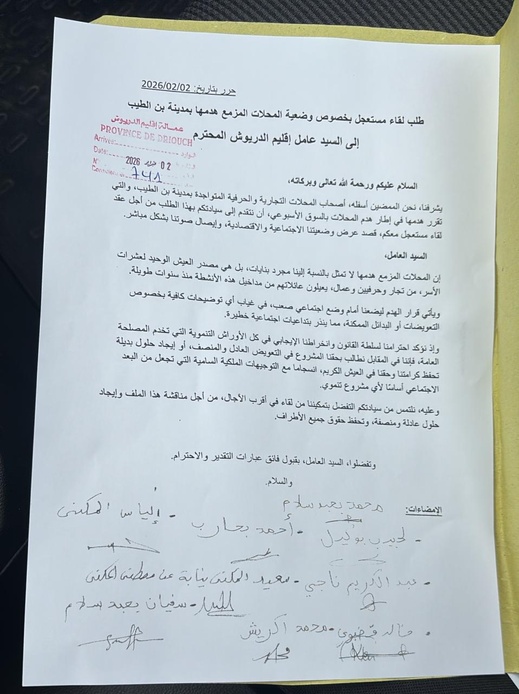 حرر بتاريخ: 2026/02/02
طلب لقاء مستعجل بخصوص وضعية المحلات المزمع هدمها بمدينة بن الطيب
إلى السيد عامل إقليم الدريوش المحترم
عمالة إقليم الدريوش
PROVINCE DE DRIOUCH
Arrivée
Date
02 2026
N°
741
السلام عليكم ورحمة الله تعالى وبركاته.
يشرفنا، نحن الممضين أسفله، أصحاب المحلات التجارية والحرفية المتواجدة بمدينة بن الطيب، والتي
تقرر هدمها في إطار هدم المحلات بالسوق الأسبوعي، أن نتقدم إلى سيادتكم بهذا الطلب من أجل عقد
لقاء مستعجل معكم، قصد عرض وضعيتنا الاجتماعية والاقتصادية، وإيصال صوتنا بشكل مباشر.
السيد العامل،
إن المحلات المزمع هدمها لا تمثل بالنسبة إلينا مجرد بنايات، بل هي مصدر العيش الوحيد لعشرات
الأسر، من تجار وحرفيين وعمال، يعيلون عائلاتهم من مداخيل هذه الأنشطة منذ سنوات طويلة.
ويأتي قرار الهدم ليضعنا أمام وضع اجتماعي صعب، في غياب أي توضيحات كافية بخصوص
التعويضات أو البدائل الممكنة، مما ينذر بتداعيات اجتماعية خطيرة.
وإذ نؤكد احترامنا لسلطة القانون وانخراطنا الإيجابي في كل الأوراش التنموية التي تخدم المصلحة
العامة، فإننا في المقابل نطالب بحقنا المشروع في التعويض العادل والمنصف، أو إيجاد حلول بديلة
تحفظ كرامتنا وحقنا في العيش الكريم، انسجاما مع التوجيهات الملكية السامية التي تجعل من البعد
الاجتماعي أساسًا لأي مشروع تنموي.
وعليه، نلتمس من سيادتكم التفضل بتمكيننا من لقاء في أقرب الآجال، من أجل مناقشة هذا الملف وإيجاد
حلول عادلة ومنصفة، وتحفظ حقوق جميع الأطراف.
وتفضلوا، السيد العامل، بقبول فائق عبارات التقدير والاحترام.
والسلام.
الامضاءات:
محمد بعبد سلام
- إلياس المكنى
- أحمد بحارب
- عبد الكريم ناجي
- سعيد المكنى نيابة عن مصطفى المكنى
- سفيان بعبد سلام
- خالد
- محمد اكريش